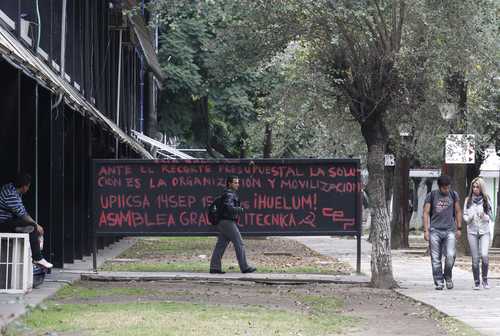 ANTE EL RECORTE PRESUPUESTAL LA SOLU-
CIÓN ES LA ORGANIZACIÓN Y MOVILIZACION
UPIICSA 14 SEP 15 ¡HUELUM!
ASAMBLEA GRAL POLITECNICA